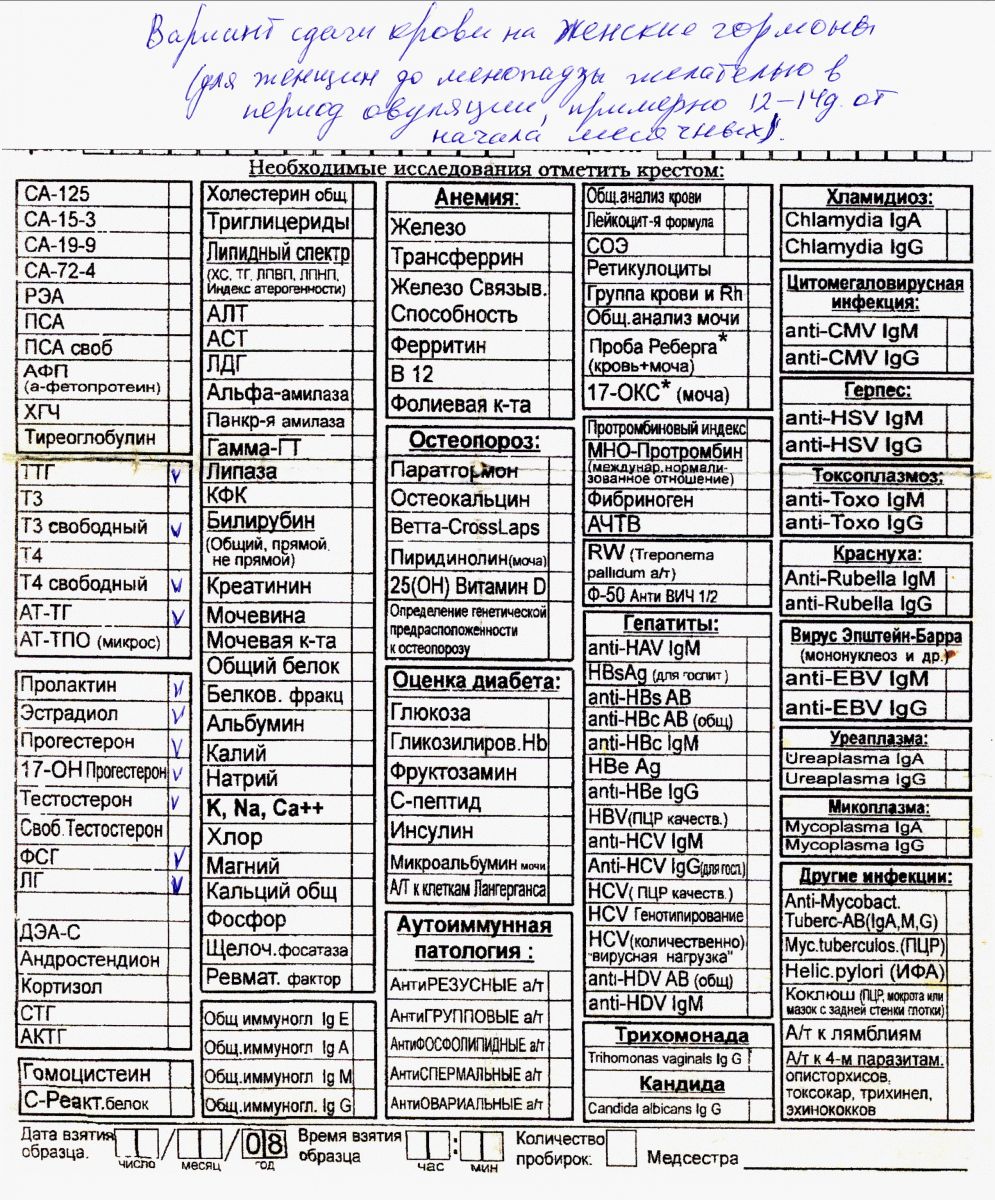 Вариант сдачи крови на женские гормоны
(для женщин до менопаузы желательно в
период овуляции, примерно 12–14д. от
начала месячных).
Необходимые исследования отметить крестом:
СА-125
СА-15-3
СА-19-9
СА-72-4
РЭА
ПСА
ПСА своб
АФП
(а-фетопротеин)
ХГЧ
Тиреоглобулин
ТТГ ✓
Т3
Т3 свободный ✓
Т4
Т4 свободный ✓
АТ-ТГ ✓
АТ-ТПО (микрос)
Пролактин ✓
Эстрадиол ✓
Прогестерон ✓
17-ОН Прогестерон ✓
Тестостерон ✓
Своб.Тестостерон
ФСГ ✓
ЛГ ✓
ДЭА-С
Андростендион
Кортизол
СТГ
АКТГ
Гомоцистеин
С-Реакт.белок
Холестерин общ
Триглицериды
Липидный спектр
(ХС, ТГ, ЛПВП, ЛПНП,
Индекс атерогенности)
АЛТ
АСТ
ЛДГ
Альфа-амилаза
Панкр-я амилаза
Гамма-ГТ
Липаза
КФК
Билирубин
(Общий, прямой.
не прямой)
Креатинин
Мочевина
Мочевая к-та
Общий белок
Белков. фракц
Альбумин
Калий
Натрий
K, Na, Ca++
Хлор
Магний
Кальций общ
Фосфор
Щелоч.фосатаза
Ревмат. фактор
Общ иммуногл Ig E
Общ.иммуногл Ig A
Общ.иммуногл Ig M
Общ.иммуногл. Ig G
Анемия:
Железо
Трансферрин
Железо Связыв.
Способность
Ферритин
В 12
Фолиевая к-та
Остеопороз:
Паратгормон
Остеокальцин
Ветта-CrossLaps
Пиридинолин(моча)
25(OH) Витамин D
Определение генетической
предрасположенности
к остеопорозу
Оценка диабета:
Глюкоза
Гликозилиров.Hb
Фруктозамин
С-пептид
Инсулин
Микроальбумин мочи
А/Т к клеткам Лангерганса
Аутоиммунная
патология :
АнтиРЕЗУСНЫЕ а/т
АнтиГРУППОВЫЕ а/т
АнтиФОСФОЛИПИДНЫЕ а/т
АнтиСПЕРМАЛЬНЫЕ а/т
АнтиОВАРИАЛЬНЫЕ а/т
Общ.анализ крови
Лейкоцит-я формула
СОЭ
Ретикулоциты
Группа крови и Rh
Общ.анализ мочи
Проба Реберга*
(кровь+моча)
17-ОКС* (моча)
Протромбиновый индекс
МНО-Протромбин
(междунар.нормали-
зованное отношение)
Фибриноген
АЧТВ
RW (Treponema
pallidum а/т)
Ф-50 Анти ВИЧ 1/2
Гепатиты:
anti-HAV IgM
HBsAg (для госпит)
anti-HBs AB
anti-HBc AB (общ)
anti-HBc IgM
HBe Ag
anti-HBe IgG
HBV(ПЦР качеств.)
anti-HCV IgM
Anti-HCV IgG(для госп.)
HCV( ПЦР качеств.)
HCV Генотипирование
HCV(количественно)
"вирусная нагрузка"
anti-HDV AB (общ)
anti-HDV IgM
Трихомонада
Trihomonas vaginals Ig G
Кандида
Candida albicans Ig G
Хламидиоз:
Chlamydia IgA
Chlamydia IgG
Цитомегаловирусная
инфекция:
anti-CMV IgM
anti-CMV IgG
Герпес:
anti-HSV IgM
anti-HSV IgG
Токсоплазмоз:
anti-Toxo IgM
anti-Toxo IgG
Краснуха:
Anti-Rubella IgM
anti-Rubella IgG
Вирус Эпштейн-Барра
(мононуклеоз и др.)
anti-EBV IgM
anti-EBV IgG
Уреаплазма:
Ureaplasma IgA
Ureaplasma IgG
Микоплазма:
Mycoplasma IgA
Mycoplasma IgG
Другие инфекции:
Anti-Mycobact.
Tuberc-AB(IgA,M,G)
Myc.tuberculos.(ПЦР)
Helic.pylori (ИФА)
Коклюш (ПЦР, мокрота или
мазок с задней стенки глотки)
А/т к лямблиям
А/т к 4-м паразитам.
описторхисов,
токсокар, трихинел,
эхинококков
Дата взятия образца. число / месяц / 08 год Время взятия образца час : мин Количество пробирок: Медсестра